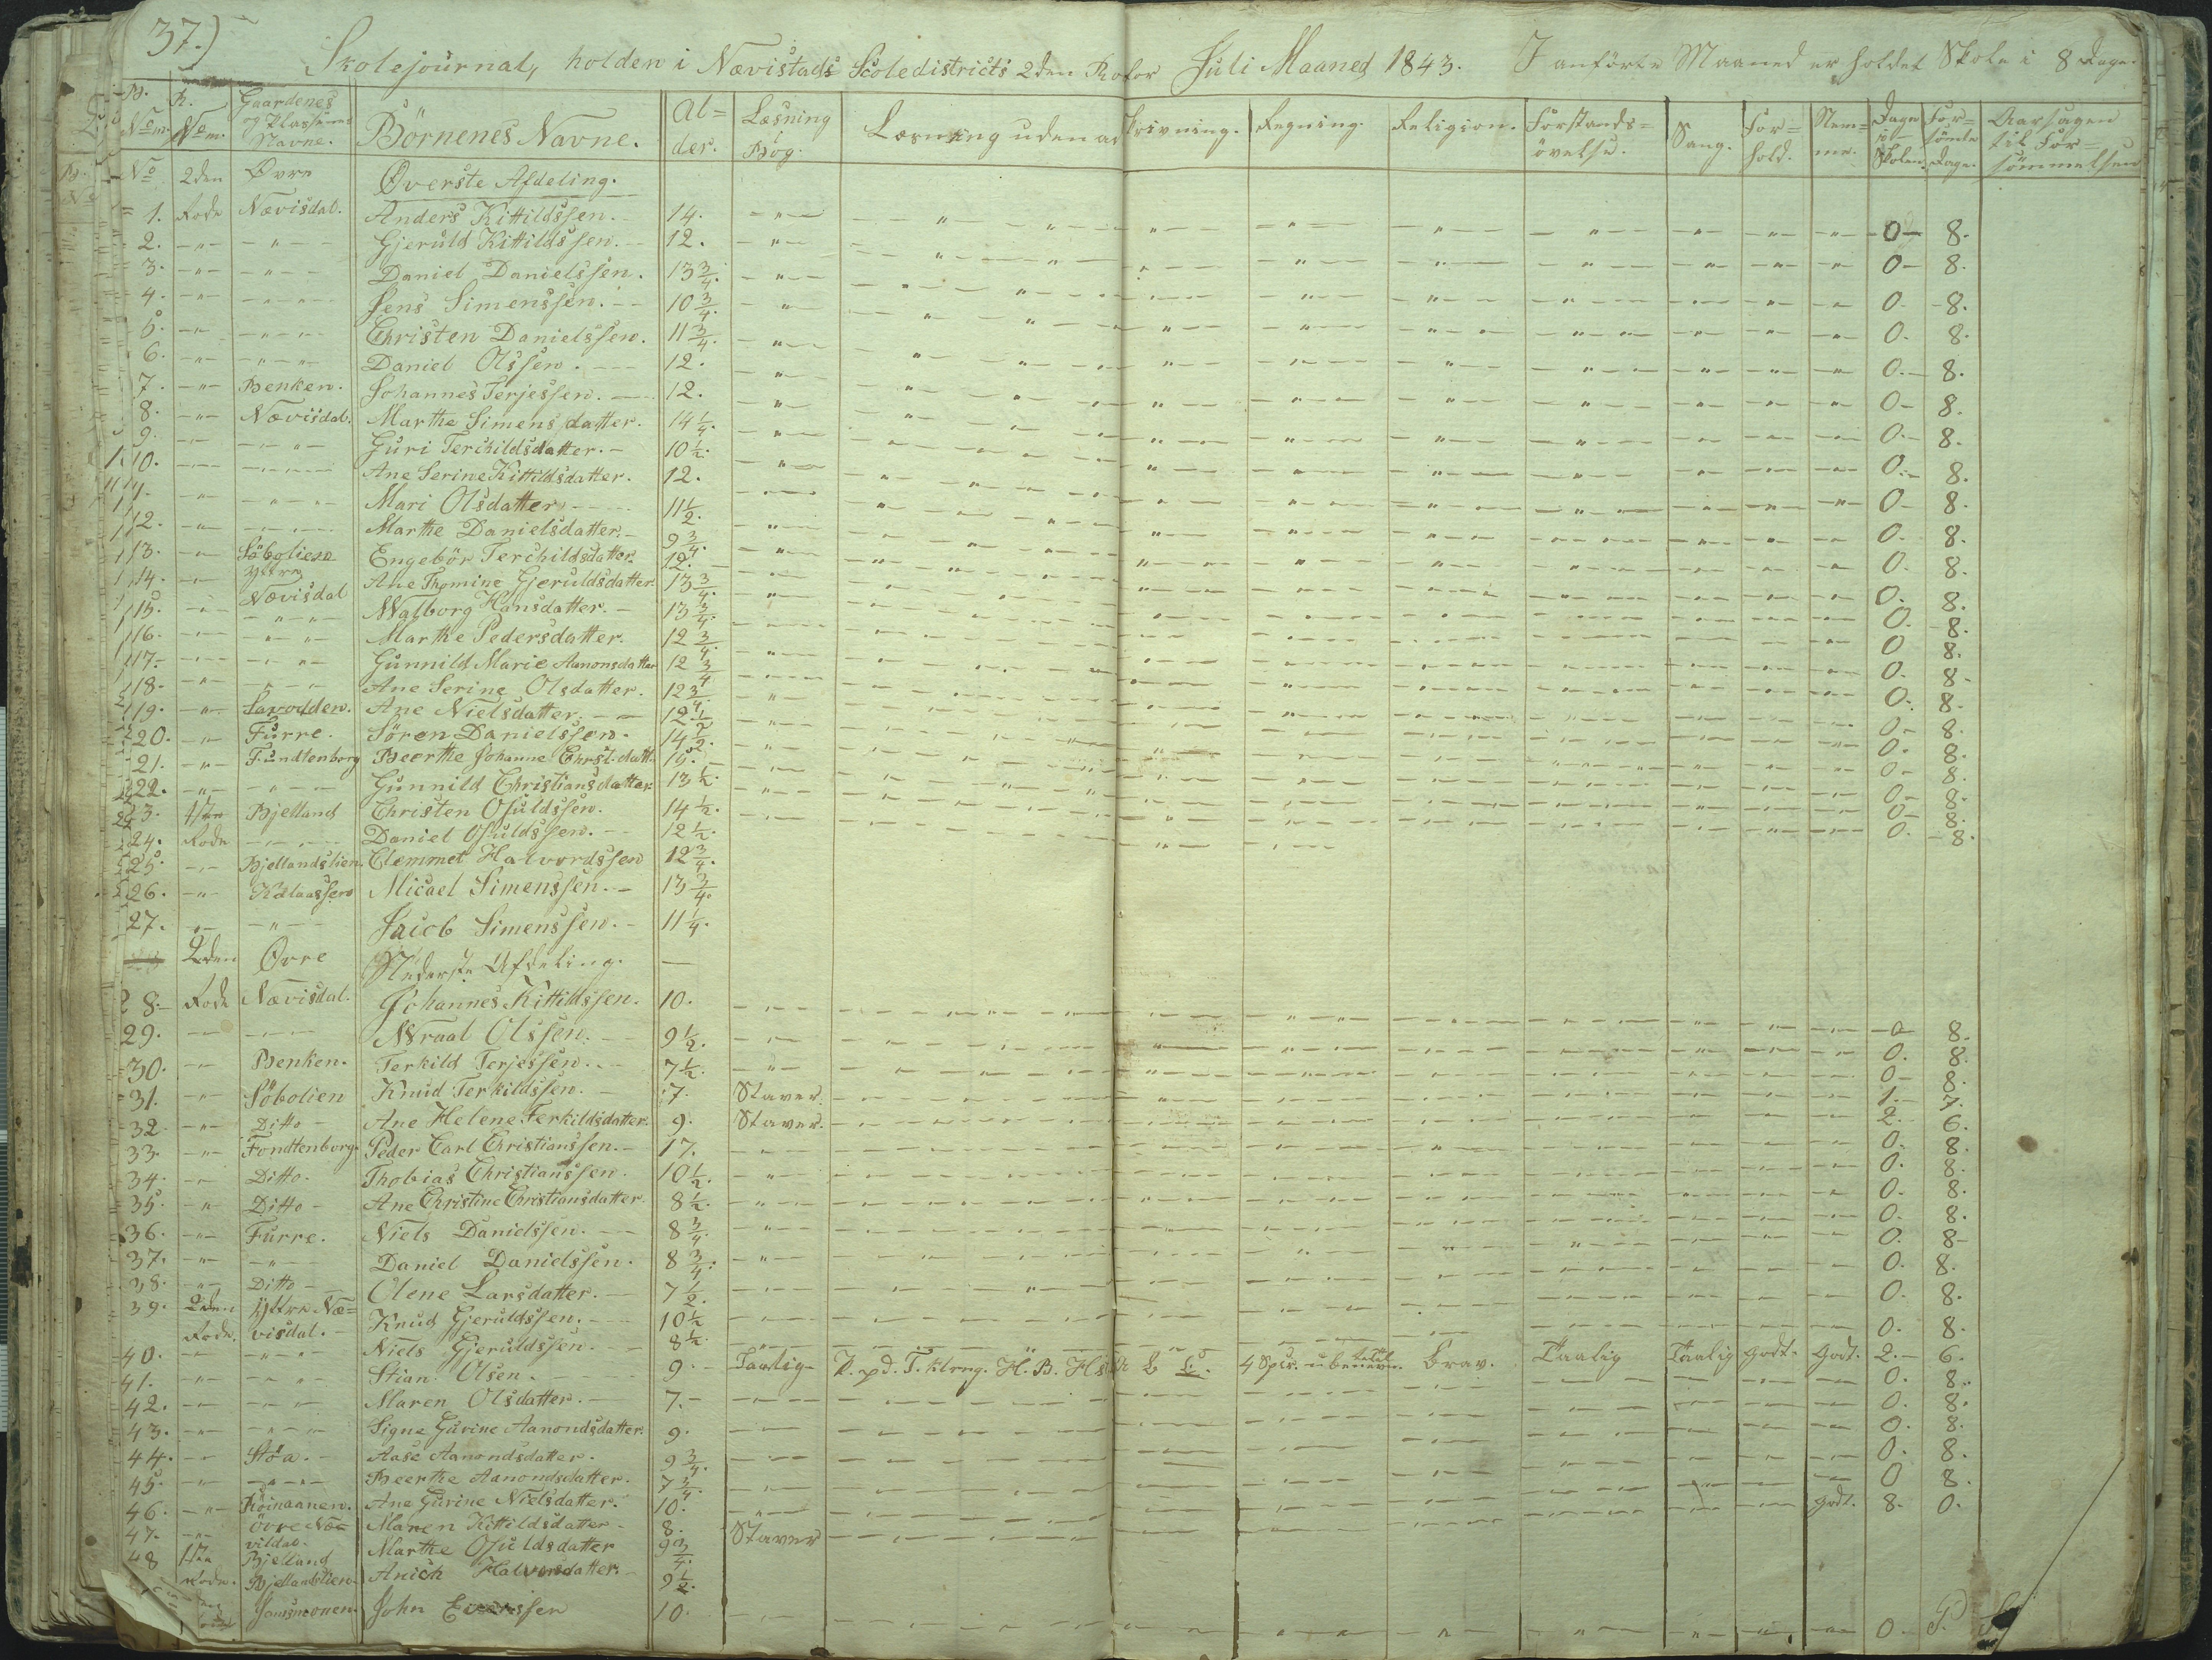 37.)
Skolejournal, holden i Nævistads Scoledistricts 2den Rofor Juli Maaned 1843. I anförte Maaned er holdet Skole i 8 Dage.
B. No m. R. No m. Gaardenes og Plassenes Navne. Börnenes Navne. Al= der. Læsning Bog. Læsning uden ad Skrivning. Regning. Religion. Forstands= övelse. Sang. For= hold. Nem= me. Dage i Skolen. For= sömte Dage. Aarsagen til For= sömmelsen
No 2den Øvre Överste Afdeling.
1. Rode Nævisdal. Anders Kittildssen. 14. 0 8.
2. Gjeruld Kittildssen. 12. 0 8.
3. Daniel Danielssen. 13 3/4. 0 8.
4. Jens Simenssen. 10 3/4. 0. 8.
5. Christen Danielssen. 11 3/4. 0. 8.
6. Daniel Olssen. 12. 0. 8.
7. Benken. Johannes Terjessen. 12. 0 8.
8. Nævisdal. Marthe Simensdatter. 14 1/4. 0. 8.
9. Guri Terchildsdatter. 10 1/2. 0. 8.
10. Ane Serine Kittildsdatter. 12. 0 8.
11. Mari Olsdatter 11 1/2. 0. 8.
12. Marthe Danielsdatter. 9 3/4. 0. 8.
13. Söbolien Engebör Terchildsdatter. 12. 0. 8.
14. Yttre Nævisdal Ane Thomine Gjeruldsdatter 13 3/4. 0. 8.
15. Walborg Hansdatter. 13 3/4. 0 8.
16. Marthe Pedersdatter. 12 3/4. 0. 8.
17. Gunnild Marie Aanonsdatter 12 3/4 0. 8.
18. Ane Serine Olsdatter. 12 3/4 0. 8.
19. Savodden. Ane Nielsdatter. 12 1/2 0. 8.
20. Furre. Sören Danielssen. 14 1/2. 0. 8.
21. Fundtenborg Beerthe Johanne Chrst.datt. 15. 0. 8.
22. Gunnild Christiansdatter 13 1/2. 0 8.
23. 1ste Bjelland Christen Osuldssen. 14 1/2. 0. 8.
24. Rode Daniel Osuldssen. 12 1/2.
25. Bjellandslien. Clemmet Halvordssen 12 3/4.
26. Micael Simenssen. 13 3/4.
27. Jacob Simenssen. 11 1/4.
2den Øvre Nederste Afdeling.
28. Rode Nævisdal. Johannes Kittildssen. 10. 0 8.
29. Wraal Olssen. 9 1/2. 0. 8.
30. Benken. Terkild Terjessen. 7 1/2. 0 8.
31. Söbolien Knud Terkildssen. 7. Staver. 1. 7.
32. Ditto Ane Helene Terkildsdatter. 9. Staver. 2. 6.
33. Fondtenborg. Peder Carl Christianssen. 17. 0. 8.
34. Ditto. Thobias Christianssen. 10 1/2. 0. 8.
35. Ditto Ane Christine Christiansdatter. 8 1/2. 0. 8.
36. Furre. Niels Danielssen. 8 3/4. 0. 8.
37. Daniel Danielssen. 8 3/4. 0. 8
38. Ditto Olene Larsdatter. 7 1/2. 0. 8.
39. 2den Rode. Yttre Næ= visdal. Knud Gjeruldssen. 10 1/2 0. 8.
40. Niels Gjeruldssen. 8 1/2. 0. 8.
41. Stian Olsen. 9. Taalig Brav. Taalig Taalig godt. Godt. 2. 6.
42. Maren Olsdatter. 7. 0. 8.
43. Signe Gurine Aanondsdatter. 9. 0. 8.
44. Stöa. Aase Aanondsdatter. 9 3/4. 0. 8.
45. Beerthe Aanondsdatter. 7 3/4. 0. 8.
46. Röinaanen. Ane Gurine Nielsdatter. 10. 0 8.
47. Övre Næ= visdal. Maren Kittildsdatter 8. Staver godt. 8. 0.
48 1ste Rode. Bjelland Marthe Osuldsdatter 9 3/4.
Bjellandslien. Anich Halvorsdatter. 9 1/2.
Jansmonen. John Evenssen 10. 0.